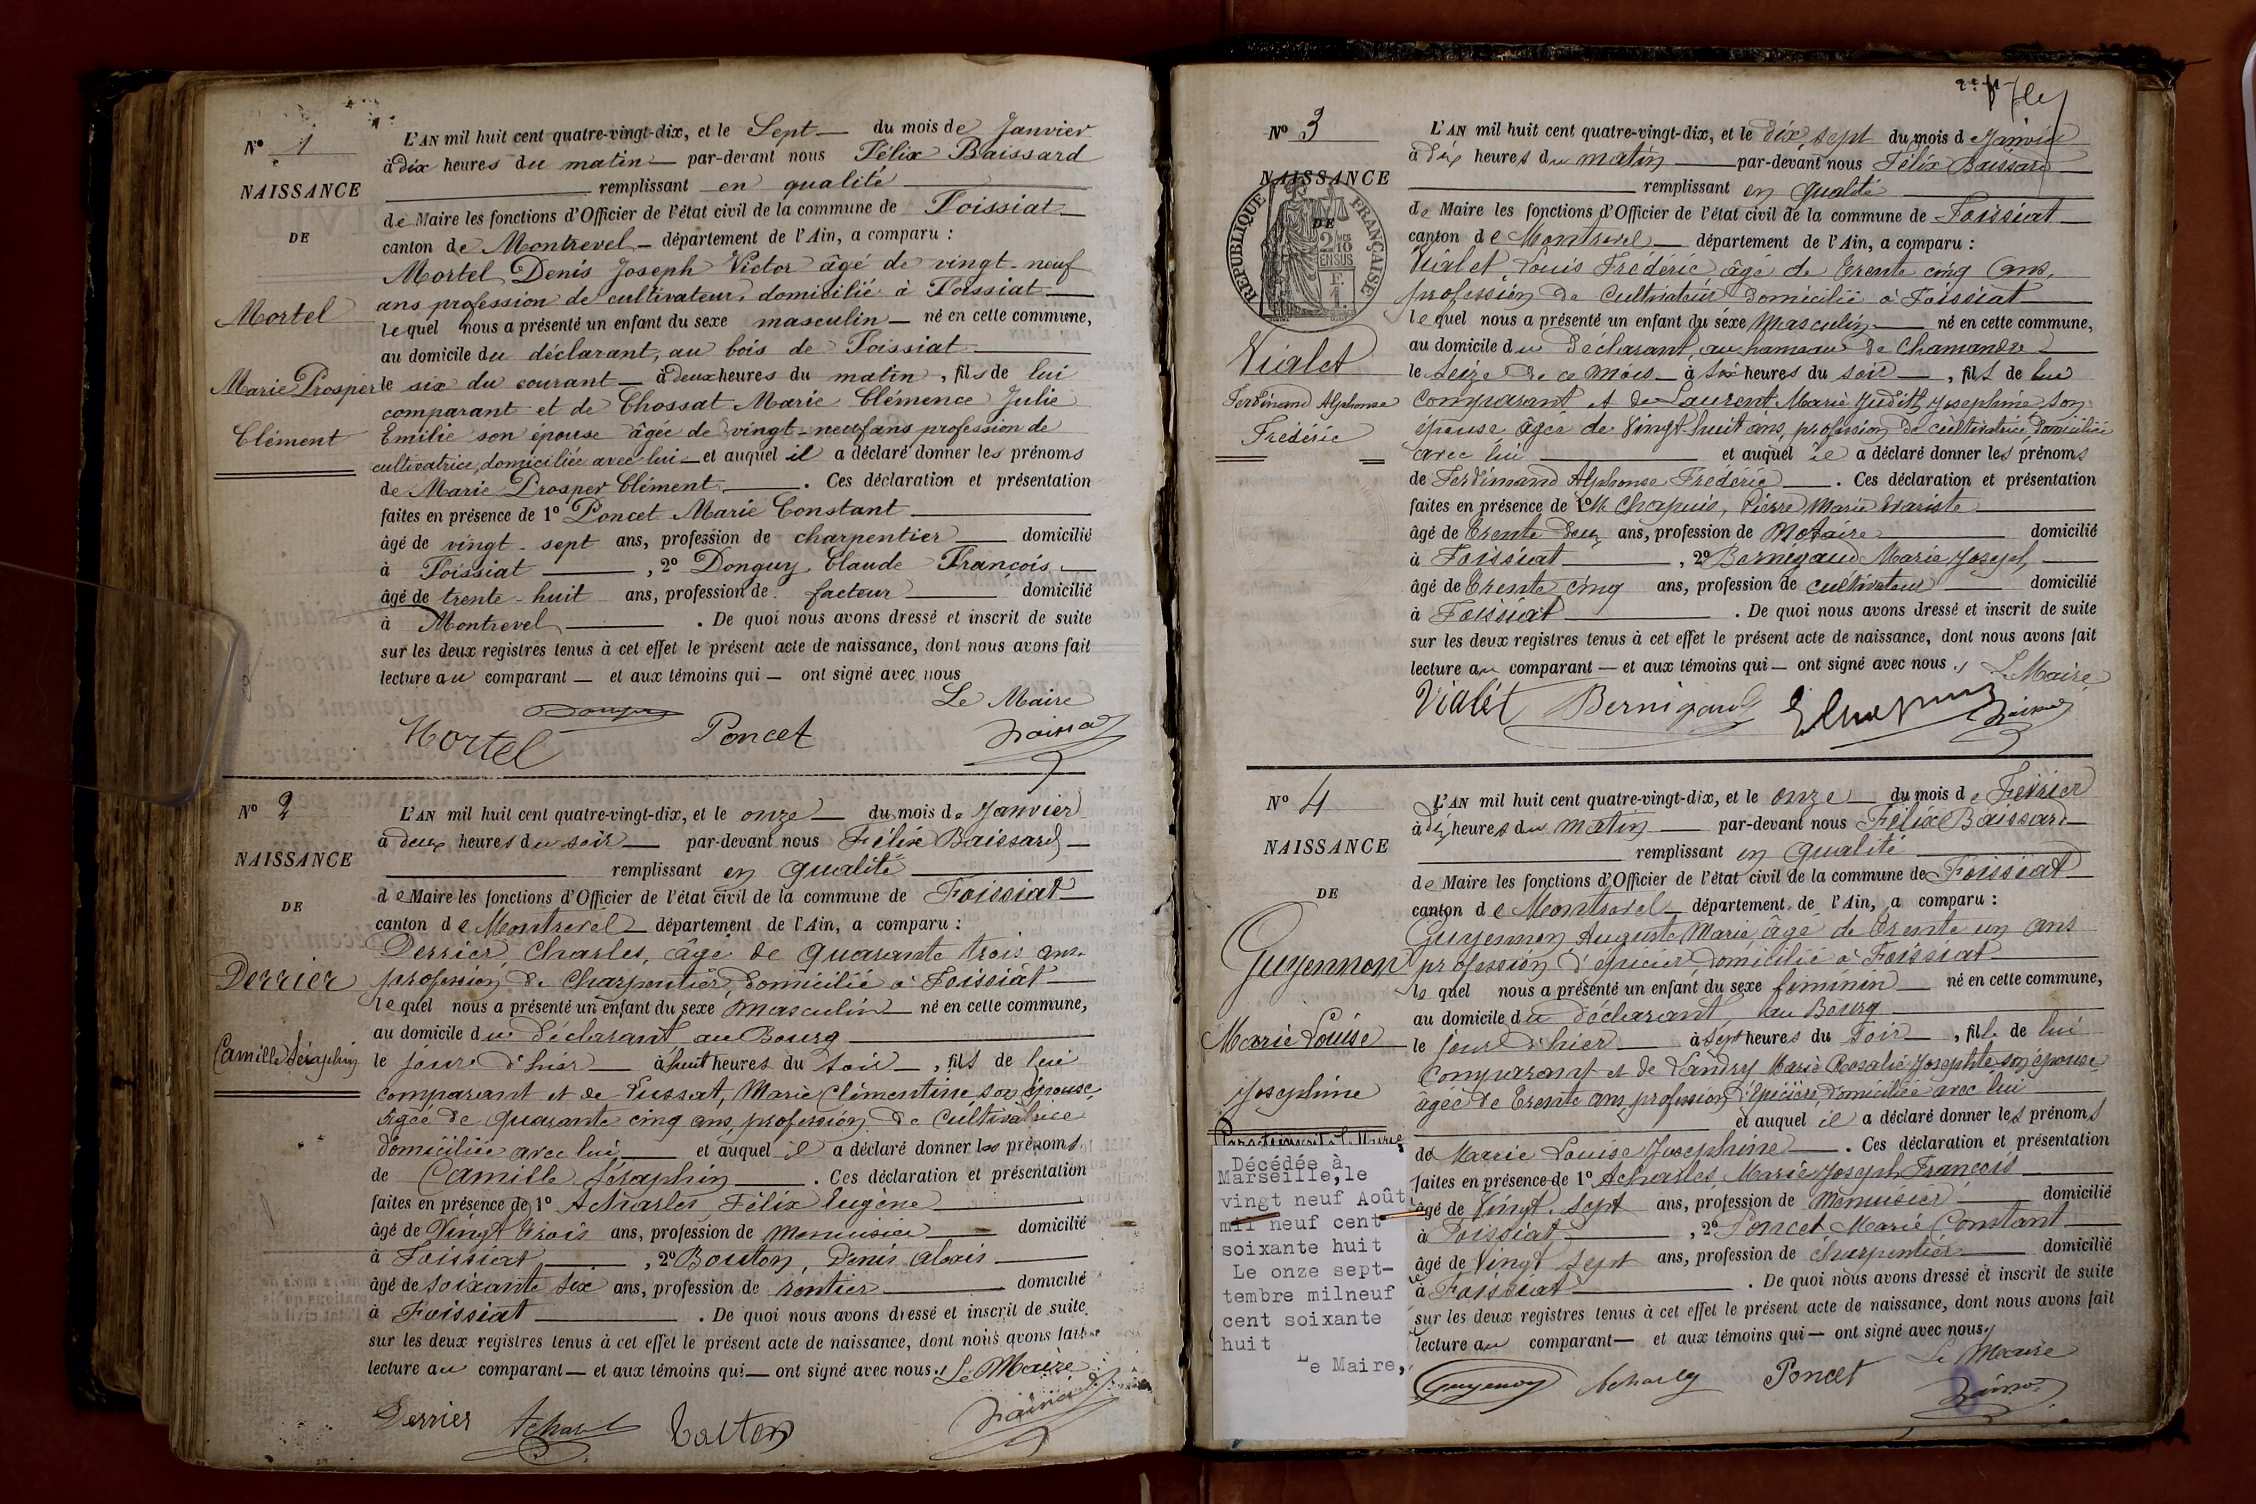 N° 1
NAISSANCE
DE
Mortel
Marie Prosper
Clément
L'AN mil huit cent quatre-vingt-dix, et le Sept du mois de Janvier
à dix heures du matin par-devant nous Félix Baissard
remplissant en qualité
de Maire les fonctions d'Officier de l'état civil de la commune de Foissiat
canton de Montrevel département de l'Ain, a comparu :
Mortel Denis Joseph Victor âgé de vingt-neuf
ans profession de cultivateur, domicilié à Foissiat
lequel nous a présenté un enfant du sexe masculin né en cette commune,
au domicile du déclarant, au bois de Foissiat
le six du courant à deux heures du matin, fils de lui
comparant et de Chossat Marie Clémence Julie
Emilie son épouse âgée de vingt-neuf ans profession de
cultivatrice, domiciliée avec lui et auquel il a déclaré donner les prénoms
de Marie Prosper Clément. Ces déclaration et présentation
faites en présence de 1° Poncet Marie Constant
âgé de vingt-sept ans, profession de charpentier domicilié
à Foissiat, 2° Donguy Claude François
âgé de trente-huit ans, profession de facteur domicilié
à Montrevel. De quoi nous avons dressé et inscrit de suite
sur les deux registres tenus à cet effet le présent acte de naissance, dont nous avons fait
lecture au comparant et aux témoins qui ont signé avec nous
Le Maire
Mortel Donguy Poncet Baissard
N° 2
NAISSANCE
DE
Derrier
Camille Séraphin
L'AN mil huit cent quatre-vingt-dix, et le onze du mois de Janvier
à deux heures du soir par-devant nous Félix Baissard
remplissant en qualité
de Maire les fonctions d'Officier de l'état civil de la commune de Foissiat
canton de Montrevel département de l'Ain, a comparu :
Derrier, Charles, âgé de quarante trois ans
profession de Charpentier, domicilié à Foissiat
lequel nous a présenté un enfant du sexe Masculin né en cette commune,
au domicile du déclarant, au Bourg
le jour d'hier à huit heures du soir, fils de lui
comparant et de Marie Clémentine son épouse,
âgée de quarante cinq ans, profession de Cultivatrice
domiciliée avec lui et auquel il a déclaré donner les prénoms
de Camille Séraphin. Ces déclaration et présentation
faites en présence de 1° Acharles, Félix Eugène
âgé de Vingt Trois ans, profession de Menuisier domicilié
à Foissiat, 2° Bouton, Denis Alexis
âgé de soixante six ans, profession de rentier domicilié
à Foissiat. De quoi nous avons dressé et inscrit de suite
sur les deux registres tenus à cet effet le présent acte de naissance, dont nous avons fait
lecture au comparant et aux témoins qui ont signé avec nous. Le Maire
Derrier Acharles Bouton Baissard
N° 3
NAISSANCE
DE
REPUBLIQUE FRANÇAISE
2 MES 10
EN SUS
Vialet
Ferdinand Alphonse
Frédéric
L'AN mil huit cent quatre-vingt-dix, et le dix sept du mois de Janvier
à dix heures du matin par-devant nous Félix Baissard
remplissant en qualité
de Maire les fonctions d'Officier de l'état civil de la commune de Foissiat
canton de Montrevel département de l'Ain, a comparu :
Vialet, Louis Frédéric âgé de Trente cinq ans,
profession de Cultivateur domicilié à Foissiat
lequel nous a présenté un enfant du sexe Masculin né en cette commune,
au domicile du déclarant, au hameau de Chamandre
le seize de ce mois à six heures du soir, fils de lui
Comparant et de Laurent Marie Judith Joséphine son
épouse âgée de Vingt huit ans, profession de cultivatrice domiciliée
avec lui et auquel il a déclaré donner les prénoms
de Ferdinand Alphonse Frédéric. Ces déclaration et présentation
faites en présence de 1° Me Chapuis, Pierre Marie Evariste
âgé de Trente Deux ans, profession de Notaire domicilié
à Foissiat, 2° Bernigaud Marie Joseph
âgé de Trente cinq ans, profession de cultivateur domicilié
à Foissiat. De quoi nous avons dressé et inscrit de suite
sur les deux registres tenus à cet effet le présent acte de naissance, dont nous avons fait
lecture au comparant et aux témoins qui ont signé avec nous. Le Maire
Vialet Bernigaud E Chapuis Baissard
N° 4
NAISSANCE
DE
Guyennon
Marie Louise
Joséphine
Décédée à
Marseille, le
vingt neuf Août
mil neuf cent
soixante huit
Le onze sept-
tembre milneuf
cent soixante
huit
Le Maire,
L'AN mil huit cent quatre-vingt-dix, et le onze du mois de Février
à dix heures du matin par-devant nous Félix Baissard
remplissant en qualité
de Maire les fonctions d'Officier de l'état civil de la commune de Foissiat
canton de Montrevel département de l'Ain, a comparu :
Guyennon Auguste Marie âgé de Trente un ans
profession d'épicier domicilié à Foissiat
lequel nous a présenté un enfant du sexe féminin né en cette commune,
au domicile du déclarant, au Bourg
le jour d'hier à sept heures du soir, fille de lui
Comparant et de Landry Marie Rosalie Josephte son épouse
âgée de Trente ans, profession d'épicière, domiciliée avec lui
et auquel il a déclaré donner les prénoms
de Marie Louise Joséphine. Ces déclaration et présentation
faites en présence de 1° Acharles, Marie Joseph François
âgé de Vingt sept ans, profession de Menuisier domicilié
à Foissiat, 2° Poncet Marie Constant
âgé de Vingt sept ans, profession de charpentier domicilié
à Foissiat. De quoi nous avons dressé et inscrit de suite
sur les deux registres tenus à cet effet le présent acte de naissance, dont nous avons fait
lecture au comparant et aux témoins qui ont signé avec nous.
Le Maire
Guyennon Acharles Poncet Baissard